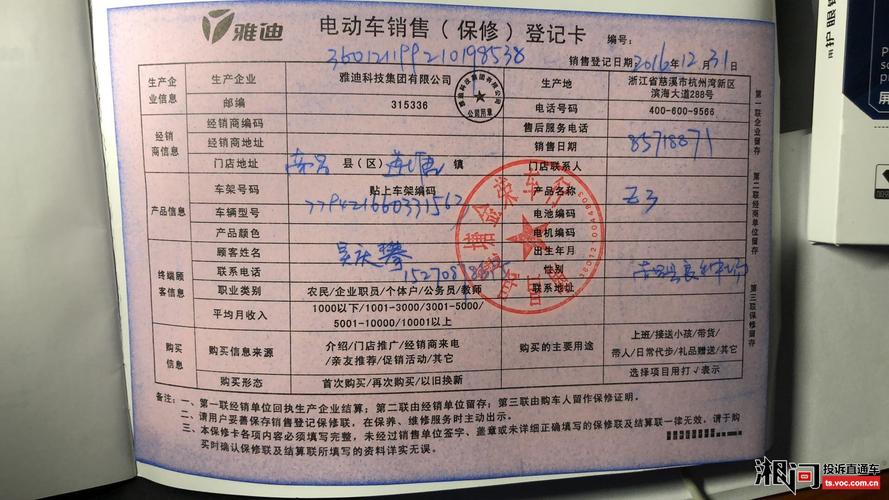 雅迪 电动车销售(保修)登记卡 编号:
销售登记日期 2016年12月31日
生产企业信息 生产企业 雅迪科技集团有限公司 生产地 浙江省慈溪市杭州湾新区滨海大道288号
邮编 315336 电话号码 400-600-9566
经销商信息 经销商编码 售后服务电话
经销商地址 销售日期 85718871
门店地址 南昌 县(区) 镇 门店联系人
产品信息 车架号码 贴上车架编码 产品名称 Z3
车辆型号 电池编码
产品颜色 电机编码
终端顾客信息 顾客姓名 出生年月
联系电话 性别
职业类别 农民/企业职员/个体户/公务员/教师 联系地址
平均月收入 1000以下/1001-3000/3001-5000/
5001-10000/10001以上
购买信息 购买信息来源 介绍/门店推广/经销商来电
/亲友推荐/促销活动/其它
购买的主要用途 上班/接送小孩/带货/
带人/日常代步/礼品赠送/其它
购买形态 首次购买/再次购买/以旧换新 选择项目用打√表示
备注:一、第一联经销单位回执生产企业结算;第二联由经销单位留存;第三联由购车人留作保修证明。
二、请用户妥善保存销售登记保修联,在保养、维修服务时主动出示。
三、本保修卡各项内容必须填写完整,未经过销售单位签字、盖章或未详细正确填写的保修联及结算联一律无效,请于购
买时确认保修联及结算联所填写的资料详实无误。
第一联企业留存
第二联经销单位留存
第三联保修留存
护眼
湘问 投诉直通车
ts.voc.com.cn